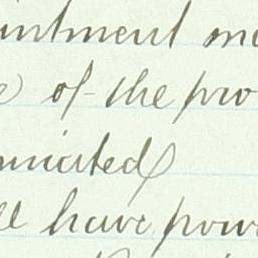 intment m
of the pro
niated
ll have pow